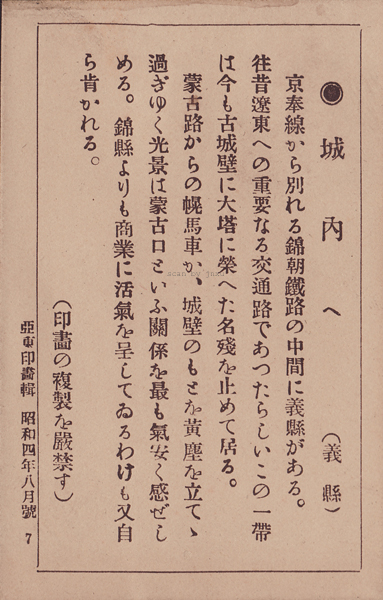 ◉城內へ
(義縣)
京奉線から別れる錦朝鐵路の中間に義縣がある。
往昔遼東への重要なる交通路であつたらしいこの一帶
は今も古城壁に大塔に榮へた名殘を止めて居る。
蒙古路からの幌馬車か、城壁のもとを黃塵を立てゝ
過ぎゆく光景は蒙古口といふ關係を最も氣安く感ぜし
める。錦縣よりも商業に活氣を呈してゐるわけも又自
ら肯かれる。
(印畫の複製を嚴禁す)
亞東印畫輯 昭和四年八月號 7